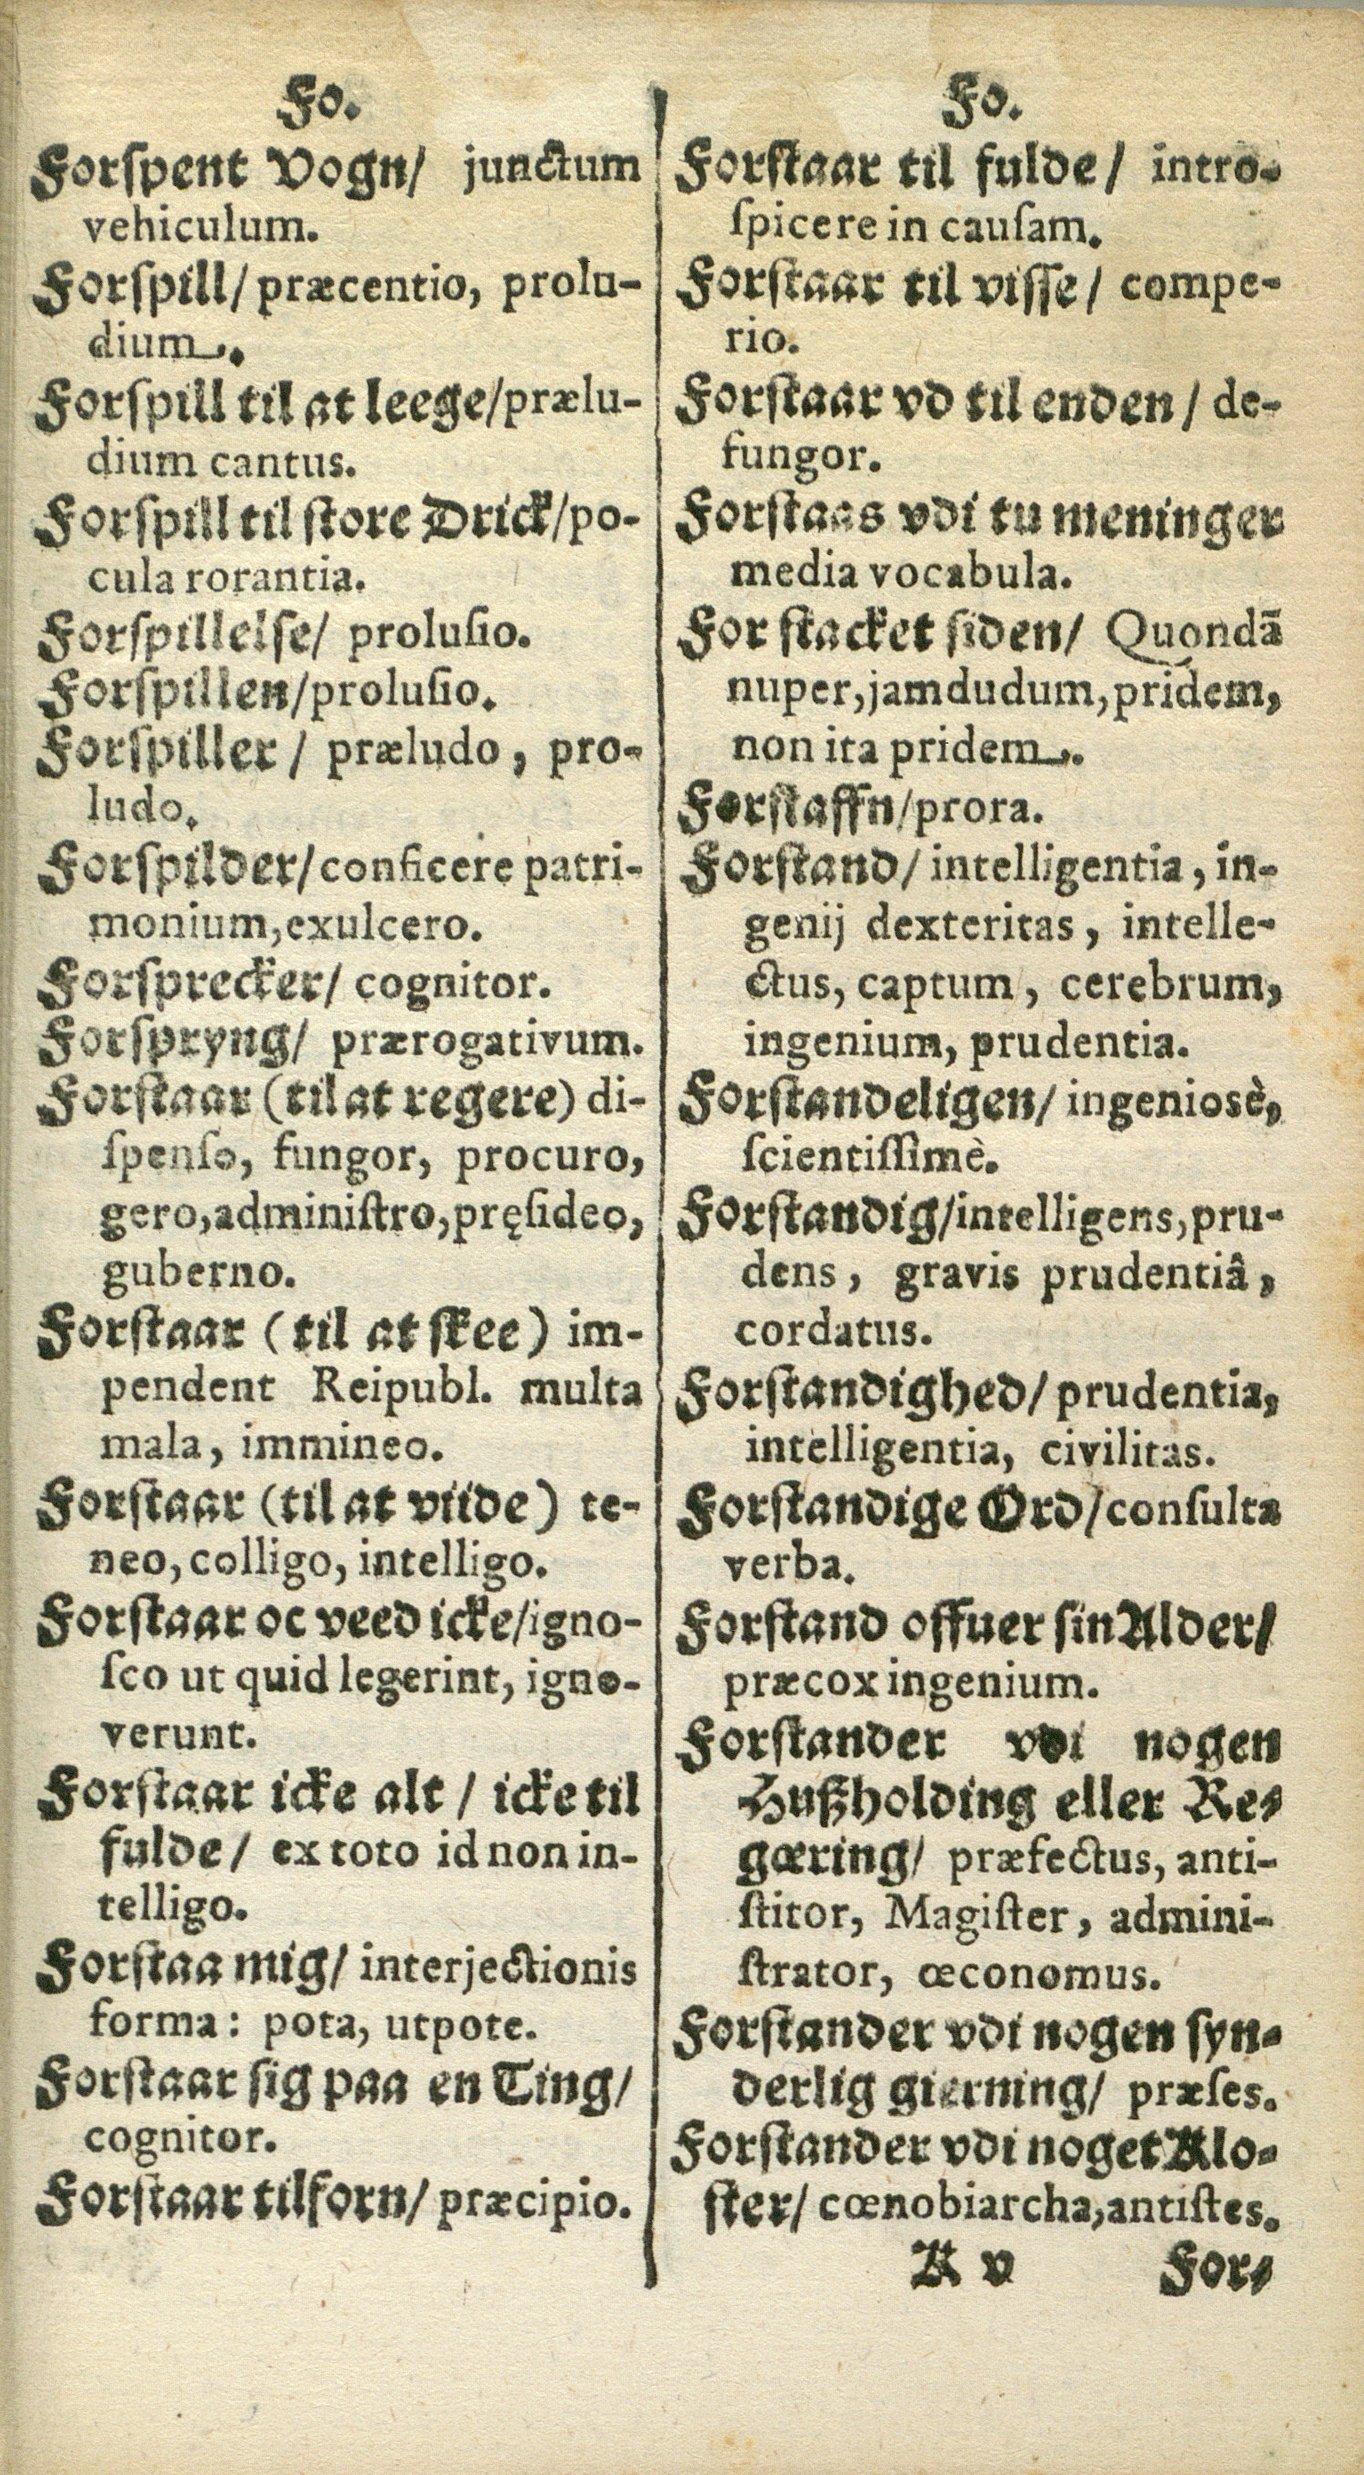 Fo.
Forſpent Vogn/ junctum
vehiculum.
Forſpill/ præcentio, prolu-
dium.
Forſpill til at leege/ prælu-
dium cantus.
Forſpill til ſtore Drick/ po-
cula rorantia.
Forſpillelſe/ proluſio.
Forſpillen/ proluſio.
Forſpiller/ præludo, pro-
ludo.
Forſpilder/ conficere patri-
monium, exulcero.
Forſprecker/ cognitor.
Forſpryng/ prærogativum.
Forſtaar (til at regere) di-
ſpenſo, fungor, procuro,
gero, adminiſtro, pręſideo,
guberno.
Forſtaar (til at ſkee) im-
pendent Reipubl. multa
mala, immineo.
Forſtaar (til at viide) te-
neo, colligo, intelligo.
Forſtaar oc veed icke/ igno-
ſco ut quid legerint, igno-
verunt.
Forſtaar icke alt/ icke til
fulde/ ex toto id non in-
telligo.
Forſtaa mig/ interjectionis
forma: pota, utpote.
Forſtaar ſig paa en Ting/
cognitor.
Forſtaar tilforn/ præcipio.
Fo.
Forſtaar til fulde/ intro-
ſpicere in cauſam.
Forſtaar til viſſe/ compe-
rio.
Forſtaar vd til enden/ de-
fungor.
Forſtaas vdi tu meninger
media vocabula.
For ſtacket ſiden/ Quondã
nuper, jamdudum, pridem,
non ita pridem.
Forſtaffn/ prora.
Forſtand/ intelligentia, in-
genij dexteritas, intelle-
ctus, captum, cerebrum,
ingenium, prudentia.
Forſtandeligen/ ingeniosè,
ſcientiſſimè.
Forſtandig/ intelligens, pru-
dens, gravis prudentiâ,
cordatus.
Forſtandighed/ prudentia,
intelligentia, civilitas.
Forſtandige Ord/ conſulta
verba.
Forſtand offuer ſin Alder/
præcox ingenium.
Forſtander vdi nogen
Hußholding eller Re-
gœring/ præfectus, anti-
ſtitor, Magiſter, admini-
ſtrator, œconomus.
Forſtander vdi nogen ſyn-
derlig gierning/ præſes.
Forſtander vdi noget Klo-
ſter/ cœnobiarcha, antiſtes.
K v For-